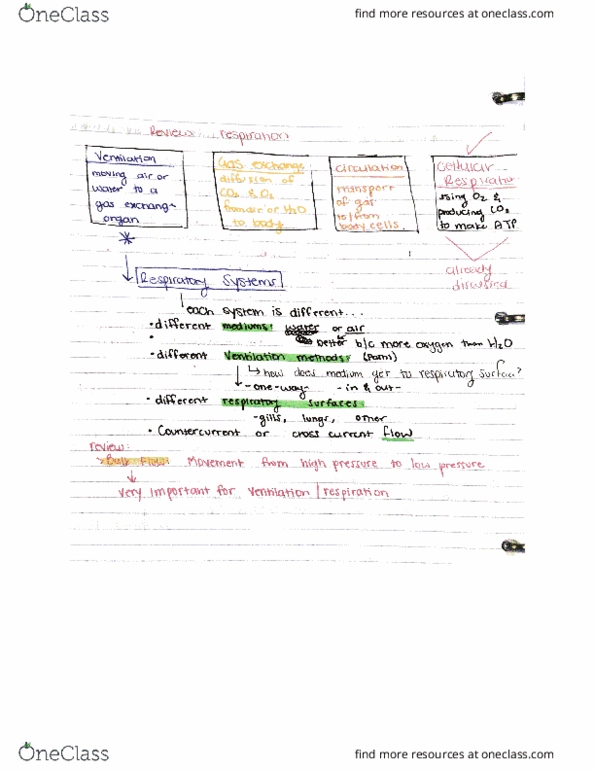 OneClass
find more resources at oneclass.com
Review: respiration
Ventilation
moving air or
water to a
gas exchange
organ
Gas exchange
diffusion of
CO2 & O2
from air or H2O
to body
circulation
transport
of gas
to/from
body cells
Cellular
Respiration
using O2 &
producing CO2
to make ATP
already
discussed
Respiratory Systems
each system is different...
• different mediums: water or air
better b/c more oxygen than H2O
• different Ventilation methods:
how does medium get to respiratory surface?
- one-way- - in & out -
• different respiratory surfaces
- gills, lungs, other
• Countercurrent or cross current flow
review:
Bulk Flow: Movement from high pressure to low pressure
very important for ventilation / respiration
OneClass
find more resources at oneclass.com